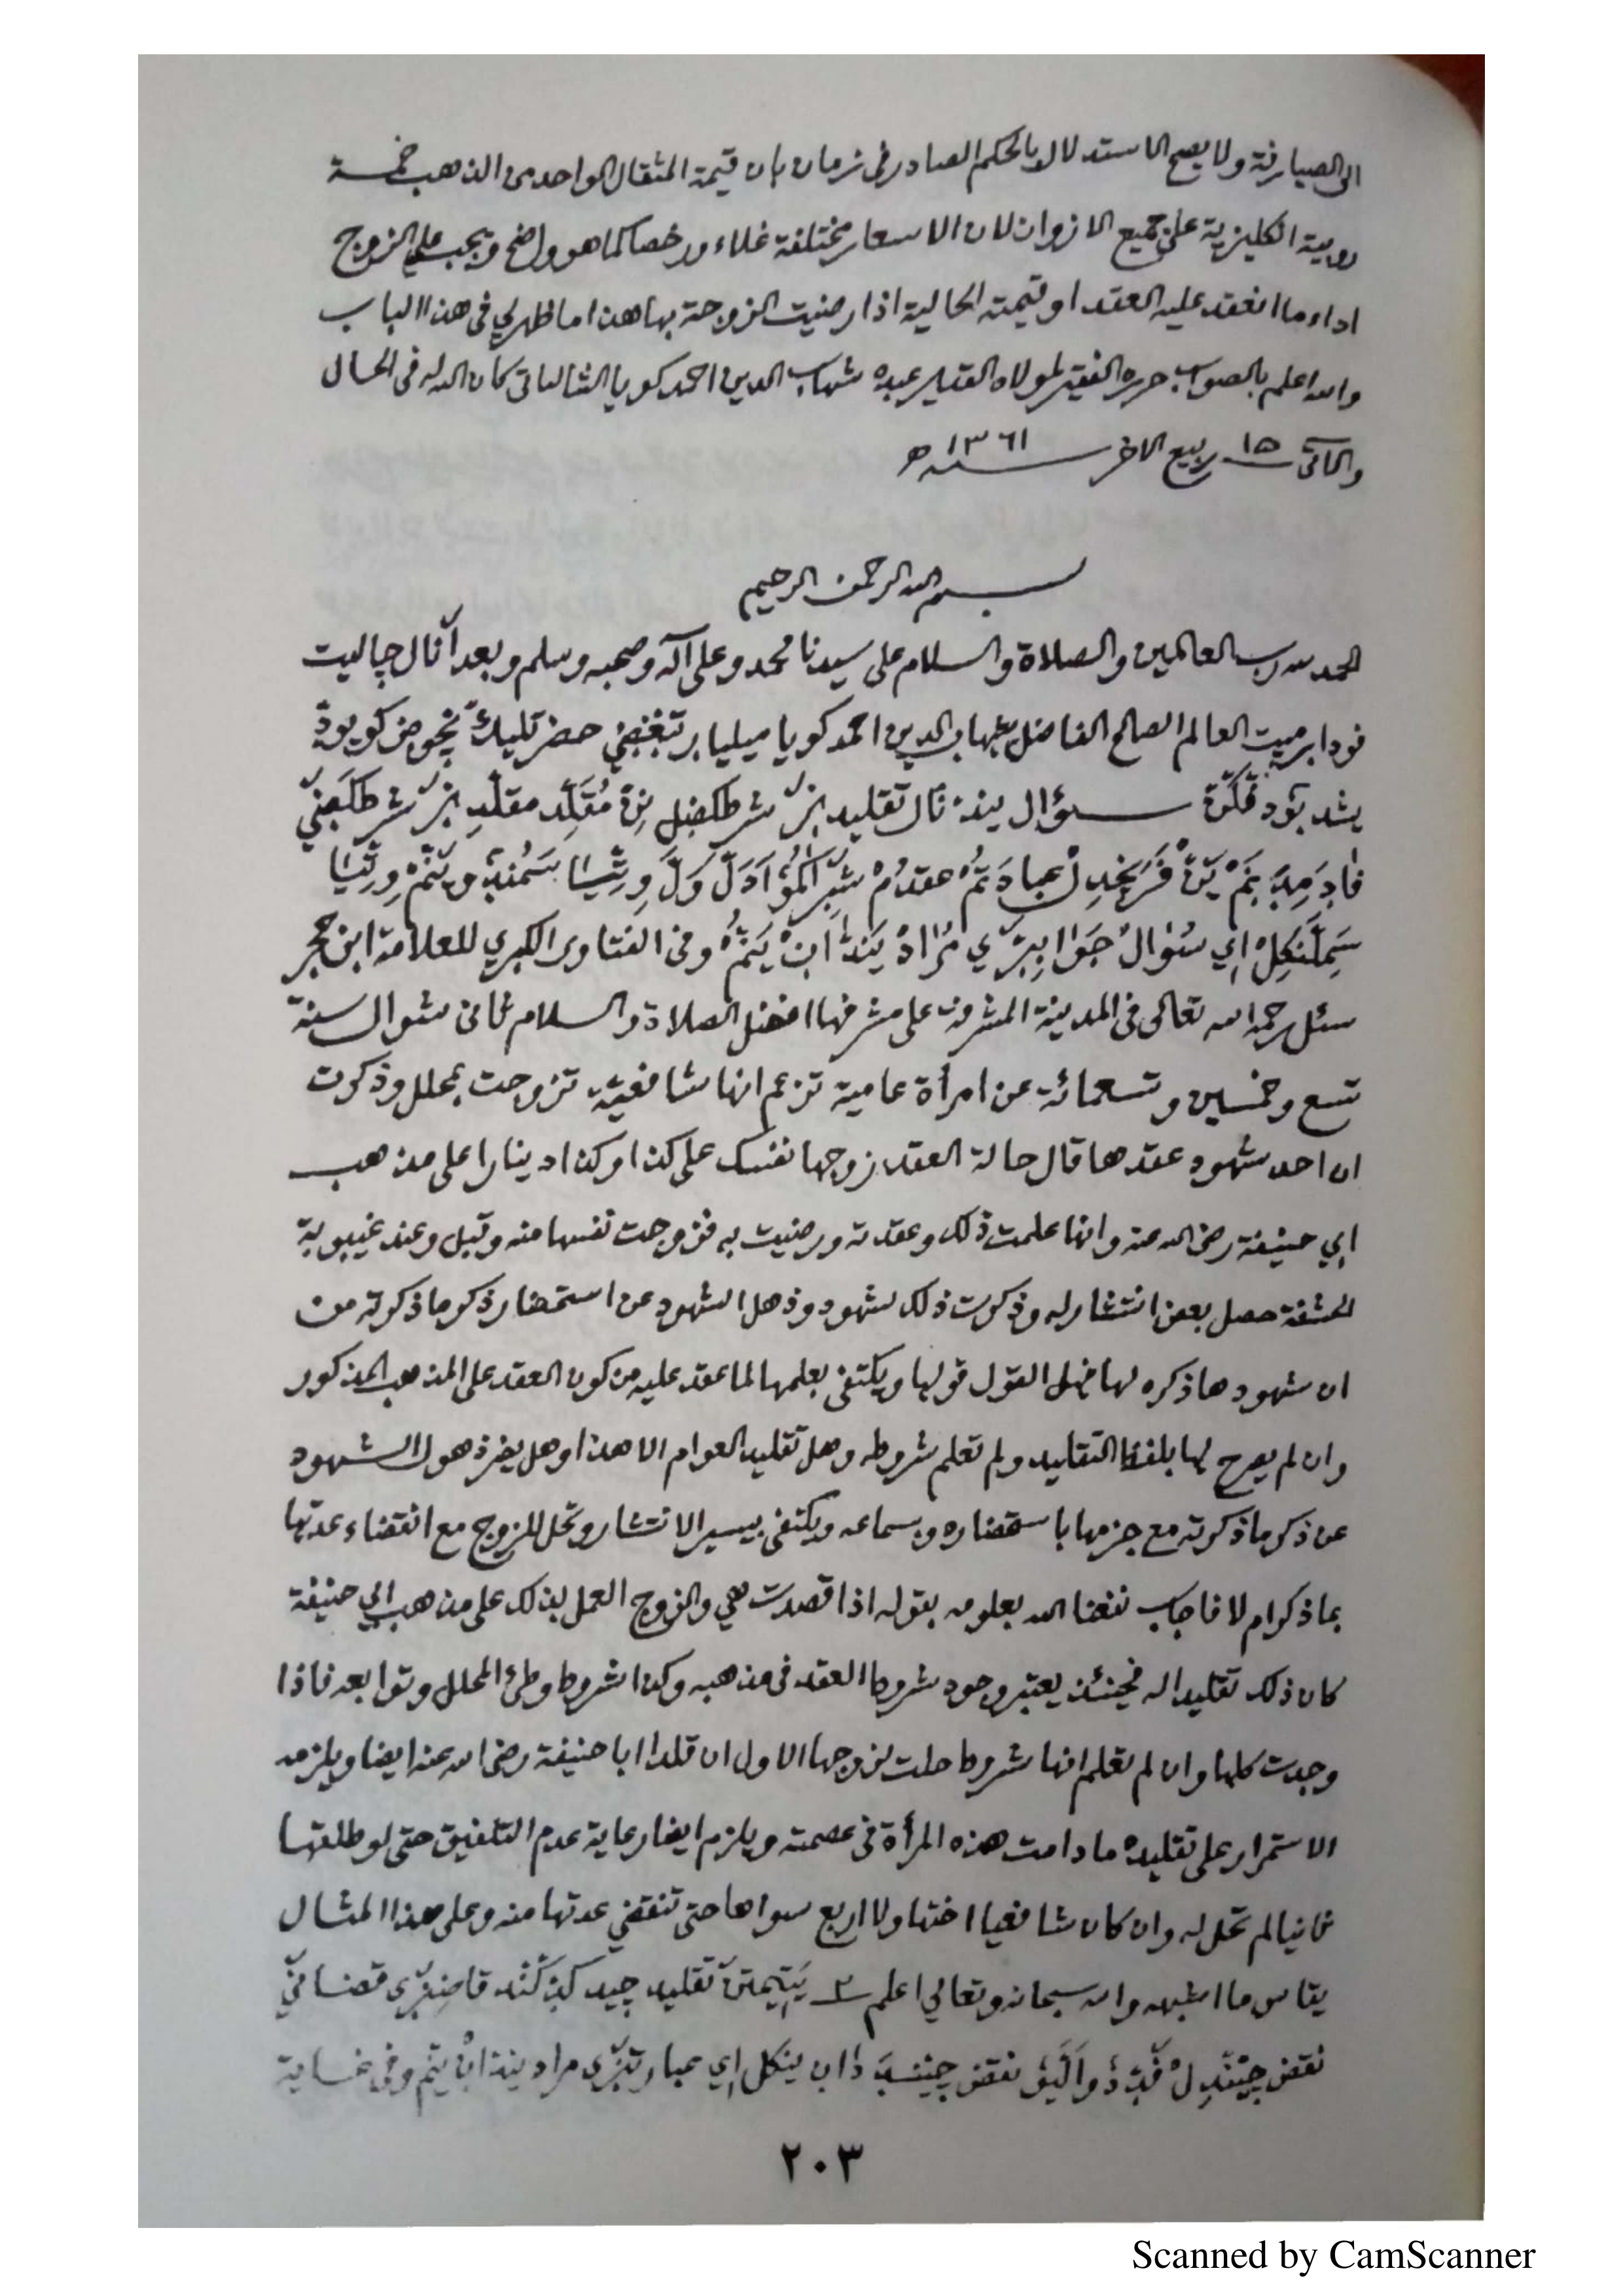 الى الصيارفة ولا يصح الاستدلال بالحكم الصادر في زمان بان قيمة المثقال الواحد من الذهب خمسة
روبية انكليزية على جميع الازوان لان الاسعار مختلفة غلاء ورخصا كما هو واضح ويجب على الزوج
اداء ما انعقد عليه العقد او قيمته الحالية اذا رضيت الزوجة بها هذا ما ظهر لي في هذا الباب
والله اعلم بالصواب حرره الفقير لمولاه القدير عبده شهاب الدين احمد كويا الشالياتي كان الله له في الحال
والمآتي ١٥ ربيع الاخر سنة ١٣٦١ ه
بسم الله الرحمن الرحيم
الحمد لله رب العالمين والصلاة والسلام على سيدنا محمد وعلى آله وصحبه وسلم وبعد آنال چاليت
العالم الصالح الفاضل شهاب الدين احمد كويا
سؤال تقليد
عقد
سؤال وفي الفتاوى الكبري للعلامة ابن حجر
سئل رحمه الله تعالى في المدينة المشرفة على مشرفها افضل الصلاة والسلام ثاني شوال سنة
تسع وخمسين وتسعمائة عن امرأة عامية تزعم انها شافعية تزوجت بمحلل وذكرت
ان احد شهود عقدها قال حالة العقد زوجها نفسك على كذا وكذا دينارا على مذهب
ابي حنيفة رضي الله عنه وانها علمت ذلك وعقدته ورضيت به فزوجت نفسها منه وقبل وعند غيبوبة
الحشفة حصل بعض انتشار له وذكرت ذلك لشهود وذهل الشهود عن استحضار ذكر ما ذكرته من
ان شهودها ذكره لها فهل القول قولها ويكتفى بعلمها لما عقد عليه من كون العقد على المذهب المذكور
وان لم يصرح لها بلفظ التقليد ولم تعلم شروطه وهل تقليد العوام الا هذا وهل يضر ذهول الشهود
عن ذكر ما ذكرته مع جزمها باستحضاره وبسماعه ويكتفى بيسير الانتشار وتحل للزوج مع انقضاء عدتها
بما ذكر ام لا فاجاب نفعنا الله بعلومه بقوله اذا قصدت هي والزوج العمل بذلك على مذهب ابي حنيفة
كان ذلك تقليدا له فحينئذ يعتبر وجود شروط العقد في مذهبه وكذا شروط وطئ المحلل وتوابعه فاذا
وجدت كلها وان لم تعلم انها شروط حلت لزوجها الاول ان قلدا ابا حنيفة رضي الله عنه ايضا ويلزمه
الاستمرار على تقليده ما دامت هذه المرأة في عصمته ويلزم ايضا رعاية عدم التلفيق حتى لو طلقها
ثانيا لم تحل له وان كان شافعيا اختها ولا اربع سواها حتى تنقضي عدتها منه وعلى هذا المثال
يقاس ما اشبهه والله سبحانه وتعالي اعلم ٢ تقليد
نقض نقض وفي غاية
٢٠٣
Scanned by CamScanner